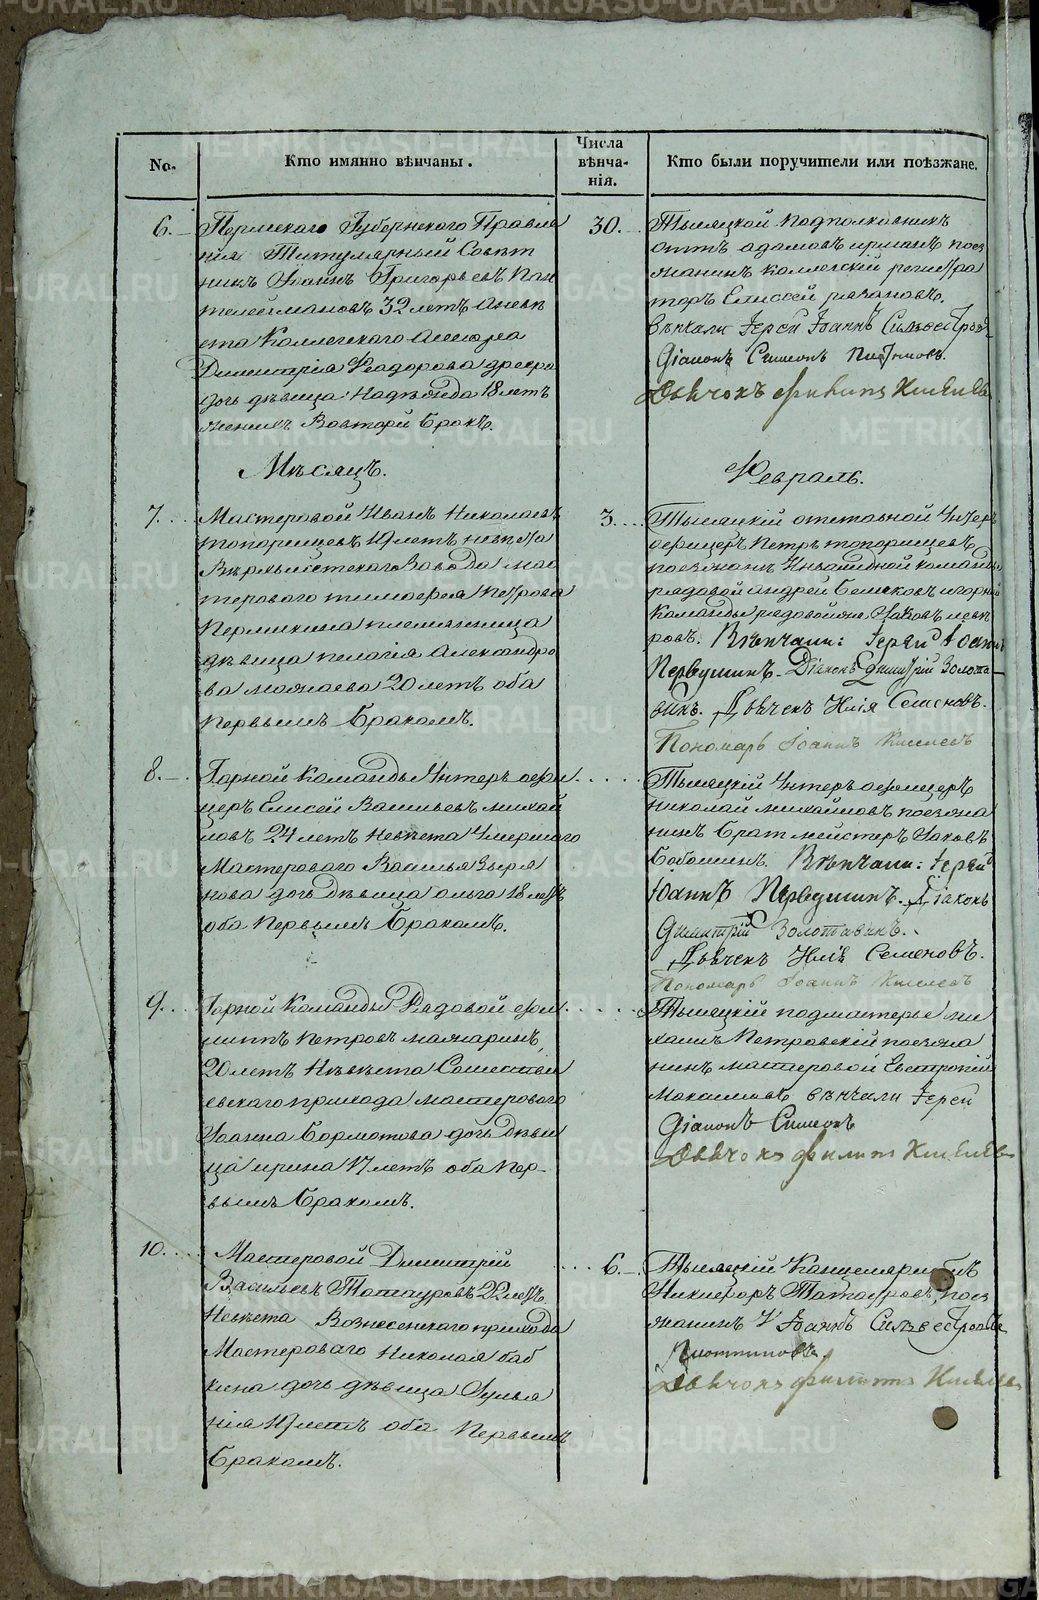 No.
Кто имянно вѣнчаны.
Числа
вѣнча-
нія.
Кто были поручители или поѣзжане.
6.
Пермскаго Губернскаго Правле
нія Титулярный Совѣт
никъ Іоаннъ Григорьевъ Пан
телеймоновъ 32 летъ Аневѣ
ста Коллежскаго Асессора
Димитрія Феодорова
дочь дѣвица Надѣжда 18 летъ
женихъ Вовторй Бракъ.
30.
Тысяцкой Подполковникъ
поез
жанинъ Коллежскій регистра
торъ Елисей
вѣнчали Іерей Іоаннъ Сильвестровъ
Діаконъ Симеонъ
Дьячокъ Филипъ Киселевъ
Мѣсяцъ.
Февраль.
7.
Мастеровой Иванъ Николаевъ
топорищевъ 19 летъ невѣста
Верхъисетскаго Завода мас
тероваго тимофея Петрова
Пермикина племянница
дѣвица пелагія Александро
ва 20 летъ оба
Первымъ Бракомъ.
3.
Тысяцкій отставной Унтеръ
офицеръ Петръ топорищевъ
поезжанъ Инвалидной команды
рядовой андрей игорной
Команды рядовой Яковъ
ровъ. Вѣнчали: Іерей Іоаннъ
Первушинъ. Діаконъ Димитрій Золота-
винъ. Дьячекъ Илія Семеновъ.
Пономарь Іоаннъ Киселевъ
8.
Горной Команды Унтеръ офи
церъ Елисей Васильевъ михай
ловъ 24 летъ Невѣста Умершаго
Мастероваго Василья Зыря
нова дочь дѣвица ольга 18 летъ
оба Первымъ Бракомъ.
Тысяцкій Унтеръ офицеръ
Николай михайловъ поезжа
нинъ Брантмейстеръ Яковъ
Бабошинъ. Вѣнчали: Іерей
Іоаннъ Первушинъ. Діаконъ
Димитрій Золотавинъ.
Дьячекъ Илія Семеновъ.
Пономарь Іоаннъ Киселевъ
9.
Горной Команды Рядовой
Петровъ
20 летъ Невѣста Сошестви
евскаго прихода мастероваго
Іоанна Бормотова дочь дѣви
ца ирина 17 летъ оба Пер-
вымъ Бракомъ.
Тысяцкій подмастерье ми
хаилъ Петровскій поезжа
нинъ мастеровой
вѣнчали Іерей
Діаконъ Симеонъ
Дьячокъ Филипъ Киселевъ
10.
Мастеровой Димитрій
Васильевъ Татауровъ 22 летъ
Невѣста Вознесенскаго прихода
Мастероваго Николая баб
кина дочь дѣвица Іулья
нія 19 летъ оба Первымъ
Бракомъ.
6.
Тысяцкій Канцеляристъ
Никифоръ Татауровъ, поез
жанинъ Іоаннъ Сильвестровъ
Дьячокъ Филипъ Киселевъ
METRIKI.GASO-URAL.RU